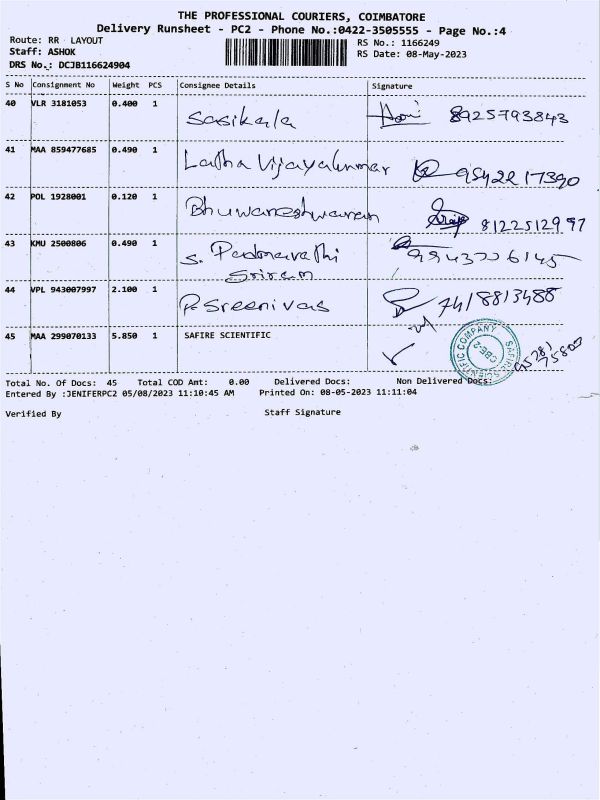 THE PROFESSIONAL COURIERS, COIMBATORE
Delivery Runsheet - PC2 - Phone No.:0422-3505555 - Page No.:4
Route: RR LAYOUT
RS No.: 1166249
Staff: ASHOK
RS Date: 08-May-2023
DRS No.: DCJB116624904
S No Consignment No Weight PCS Consignee Details Signature
40 VLR 3181053 0.400 1 Sasikala 8925793843
41 MAA 859477685 0.490 1 Latha Vijayakumar
42 POL 1928001 0.120 1 Bhuwaneshwaran 8122512997
43 KMU 2500806 0.490 1 S. Padmavathi
Sriram
44 VPL 943007997 2.100 1 P. Sreenivas 7418813488
45 MAA 299070133 5.850 1 SAFIRE SCIENTIFIC
SAFIRE SCIENTIFIC COMPANY
CBE-2
Total No. Of Docs: 45 Total COD Amt: 0.00 Delivered Docs: Non Delivered Docs:
Entered By :JENIFERPC2 05/08/2023 11:10:45 AM Printed On: 08-05-2023 11:11:04
Verified By Staff Signature